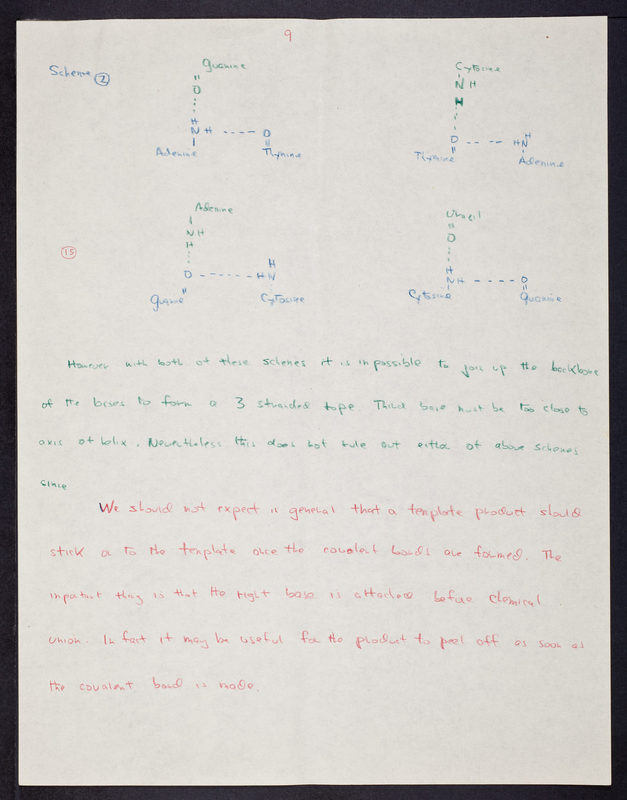 9
Scheme 2
Guanine Cytosine
O N H
H H
N H ---- O O --- HN H
Adenine Thymine Thymine Adenine
Adenine Uracil
15
N H O
H H
O ------ HN H N H ---- O
Guanine Cytosine Cytosine Guanine
However with both of these schemes it is impossible to join up the backbone
of the bases to form a 3 stranded rope. Third base must be too close to
axis of helix. Nevertheless this does not rule out either of above schemes
since
We should not expect in general that a template product should
stick on to the template once the covalent bonds are formed. The
important thing is that the right base is attached before chemical
union. In fact it may be useful for the product to peel off as soon as
the covalent bond is made.